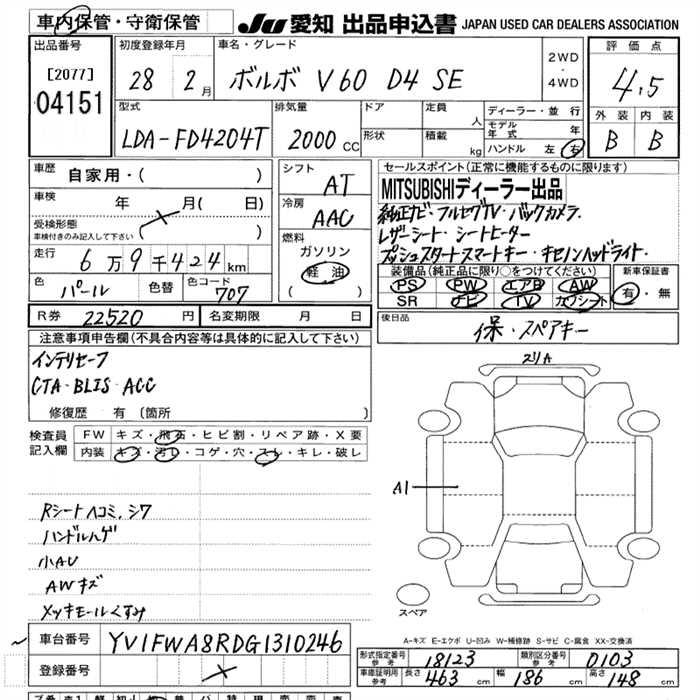 車内保管・守衛保管
JU 愛知 出品申込書 JAPAN USED CAR DEALERS ASSOCIATION
出品番号
[2077]
04151
初度登録年月
28 2月
車名・グレード
ボルボ V60 D4 SE
2WD
・
4WD
評価点
4.5
外装 内装
B B
型式
LDA-FD4204T
排気量
2000 CC
ドア
形状
定員 人
積載 kg
ディーラー・並行
モデル年式 年
ハンドル 左 右
車歴
自家用・( )
車検 年 月( 日)
受検形態
車検付きのみ記入して下さい ( )
走行
6万9千424km
色
パール
色替
色コード
707
シフト
AT
冷房
AAC
燃料
ガソリン
軽油
( )
セールスポイント(正常に機能するものに限ります)
MITSUBISHIディーラー出品
純正ナビ・フルセグTV・バックカメラ
レザーシート・シートヒーター
プッシュスタートスマートキー・キセノンヘッドライト・
装備品(純正品に限り○をつけてください)
PS PW エアB AW
SR ナビ TV カワシート
新車保証書
有・無
R券 22520 円
名変期限 月 日
後日品
保・スペアキー
注意事項申告欄(不具合内容等は具体的に記入して下さい)
インテリセーフ
CTA・BLIS・ACC
修復歴 有 〔箇所 〕
検査員
記入欄
FW キズ・飛石・ヒビ割・リペア跡・X要
内装 キズ・汚レ・コゲ・穴・スレ・キレ・破レ
Rシートヘコミ、シワ
ハンドルハゲ
小AU
AWキズ
メッキモールくすみ
スリA
A1
スペア
A-キズ E-エクボ U-凹み W-補修跡 S-サビ C-腐食 XX-交換済
車台番号 YV1FWA8RDG1310246
登録番号
形式指定番号 参考 18123
類別区分番号 参考 0103
車庫証明用 参考 長さ 463 cm 幅 186 cm 高さ 148 cm